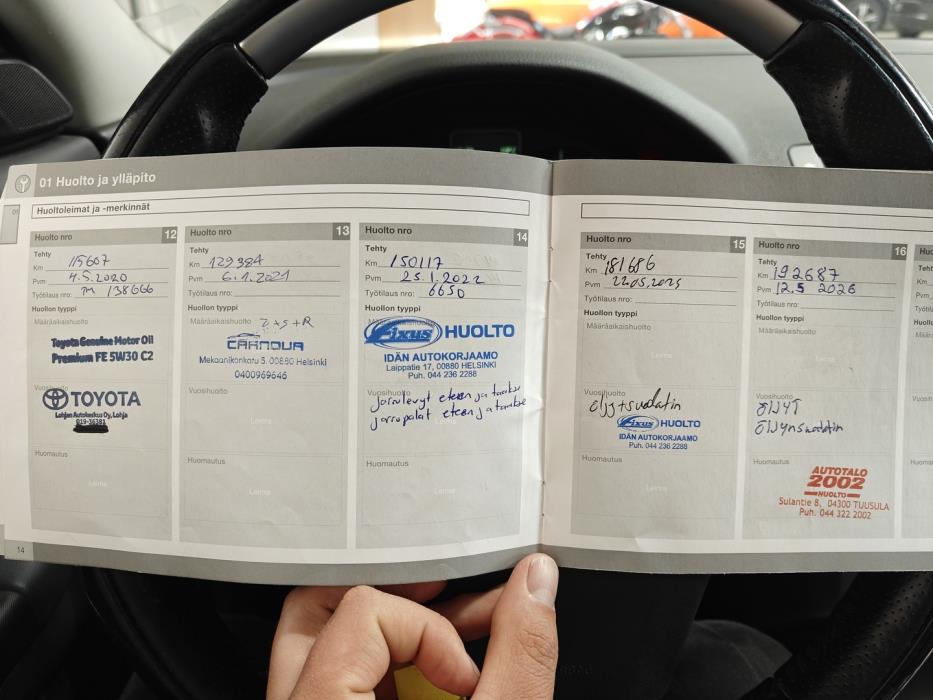 01 Huolto ja ylläpito
Huoltoleimat ja -merkinnät
Huolto nro 12
Tehty
Km 115607
Pvm 4.5.2020
Työtilaus nro: TM 138666
Huollon tyyppi
Määräaikaishuolto
Toyota Genuine Motor Oil
Premium FE 5W30 C2
Vuosihuolto
TOYOTA
Lohjan Autokeskus Oy, Lohja
019-36381
Huomautus
Leima
14
Huolto nro 13
Tehty
Km 129384
Pvm 6.1.2021
Työtilaus nro:
Huollon tyyppi
Määräaikaishuolto
CARNOVA
Mekaanikonkatu 5, 00880 Helsinki
0400969646
Vuosihuolto
Huomautus
Leima
Huolto nro 14
Tehty
Km 150117
Pvm 25.1.2022
Työtilaus nro: 6650
Huollon tyyppi
Määräaikaishuolto
Fixus HUOLTO
IDÄN AUTOKORJAAMO
Laippatie 17, 00880 HELSINKI
Puh. 044 236 2288
Vuosihuolto
jarrulevyt eteen ja taakse
jarrupalat eteen ja taakse
Huomautus
Leima
Huolto nro 15
Tehty
Km 181686
Pvm 22.05.2025
Työtilaus nro:
Huollon tyyppi
Määräaikaishuolto
Leima
Vuosihuolto
öljyt+suodatin
Fixus HUOLTO
IDÄN AUTOKORJAAMO
Puh. 044 236 2288
Huomautus
Leima
Huolto nro 16
Tehty
Km 192687
Pvm 12.5 2026
Työtilaus nro:
Huollon tyyppi
Määräaikaishuolto
Leima
Vuosihuolto
ÖljYT
Öljynsuodatin
Huomautus
AUTOTALO
2002
HUOLTO
Sulantie 8, 04300 TUUSULA
Puh. 044 322 2002
Huolto
Tehty
Km
Pvm
Työtil
Huoll
Määr